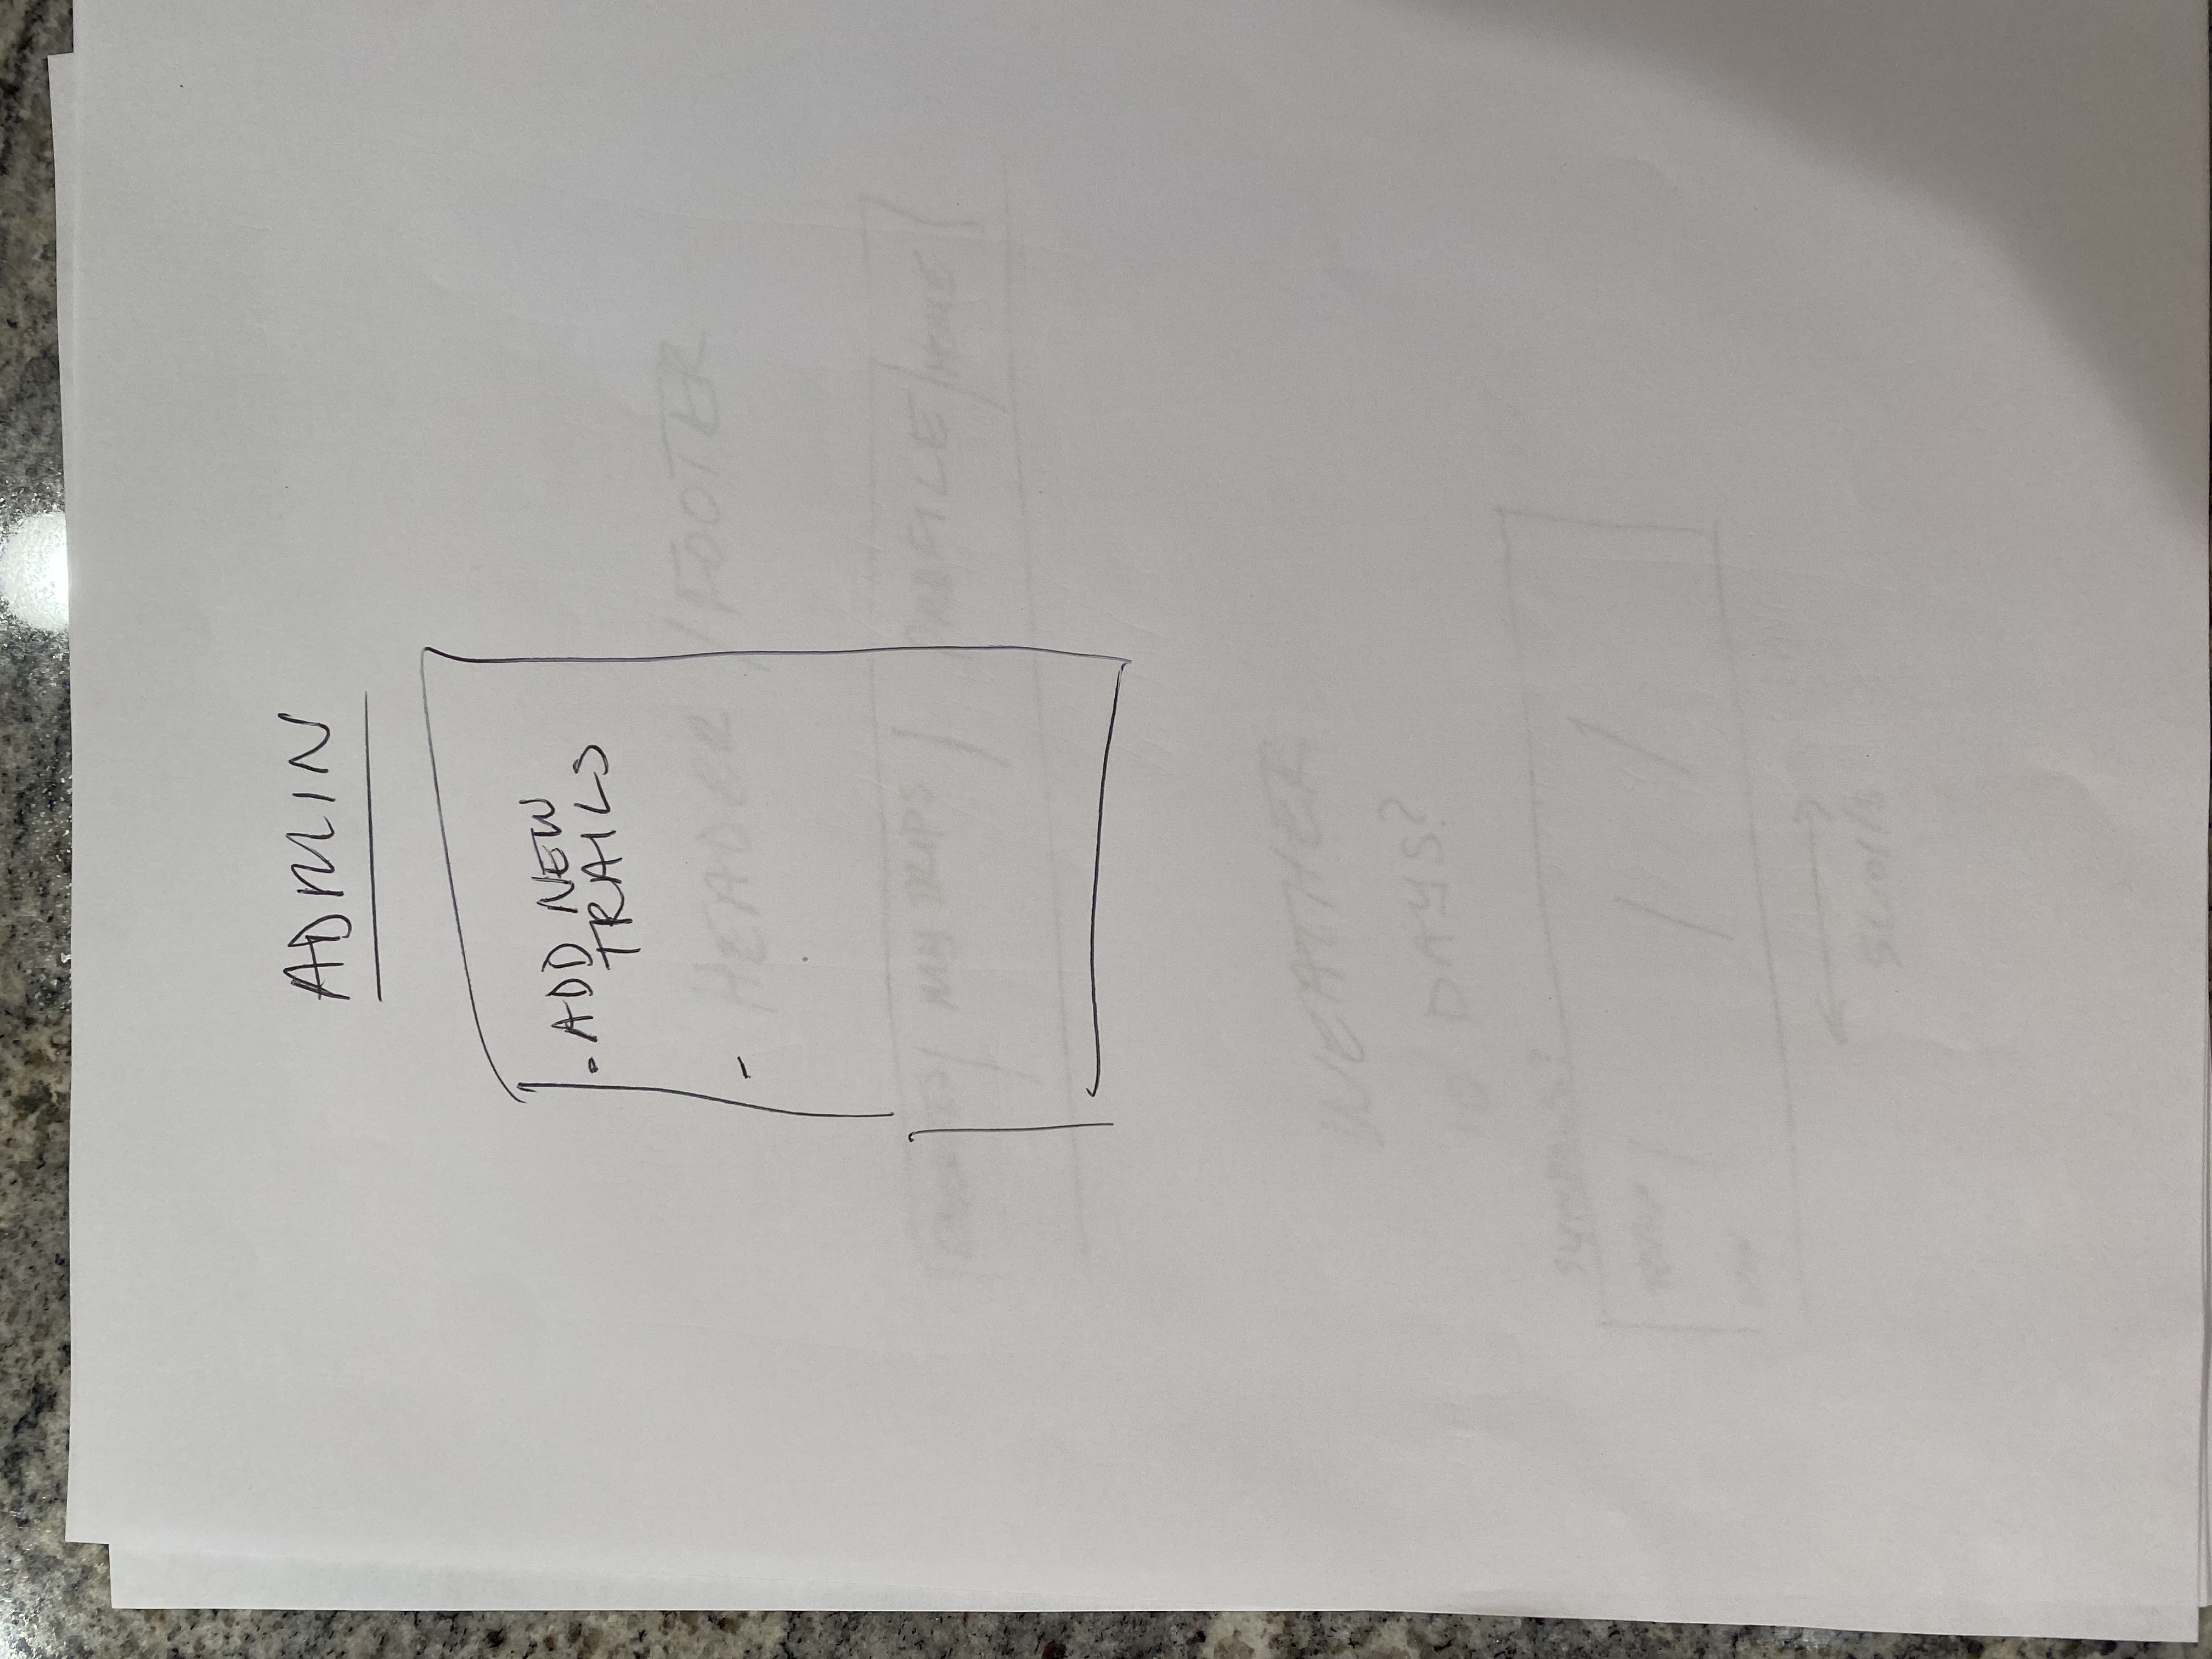 ADMIN
- ADD NEW
TRAILS
-
HEADER / FOOTER
MY TRIPS / PROFILE / HOME
WEATHER
10 DAYS?